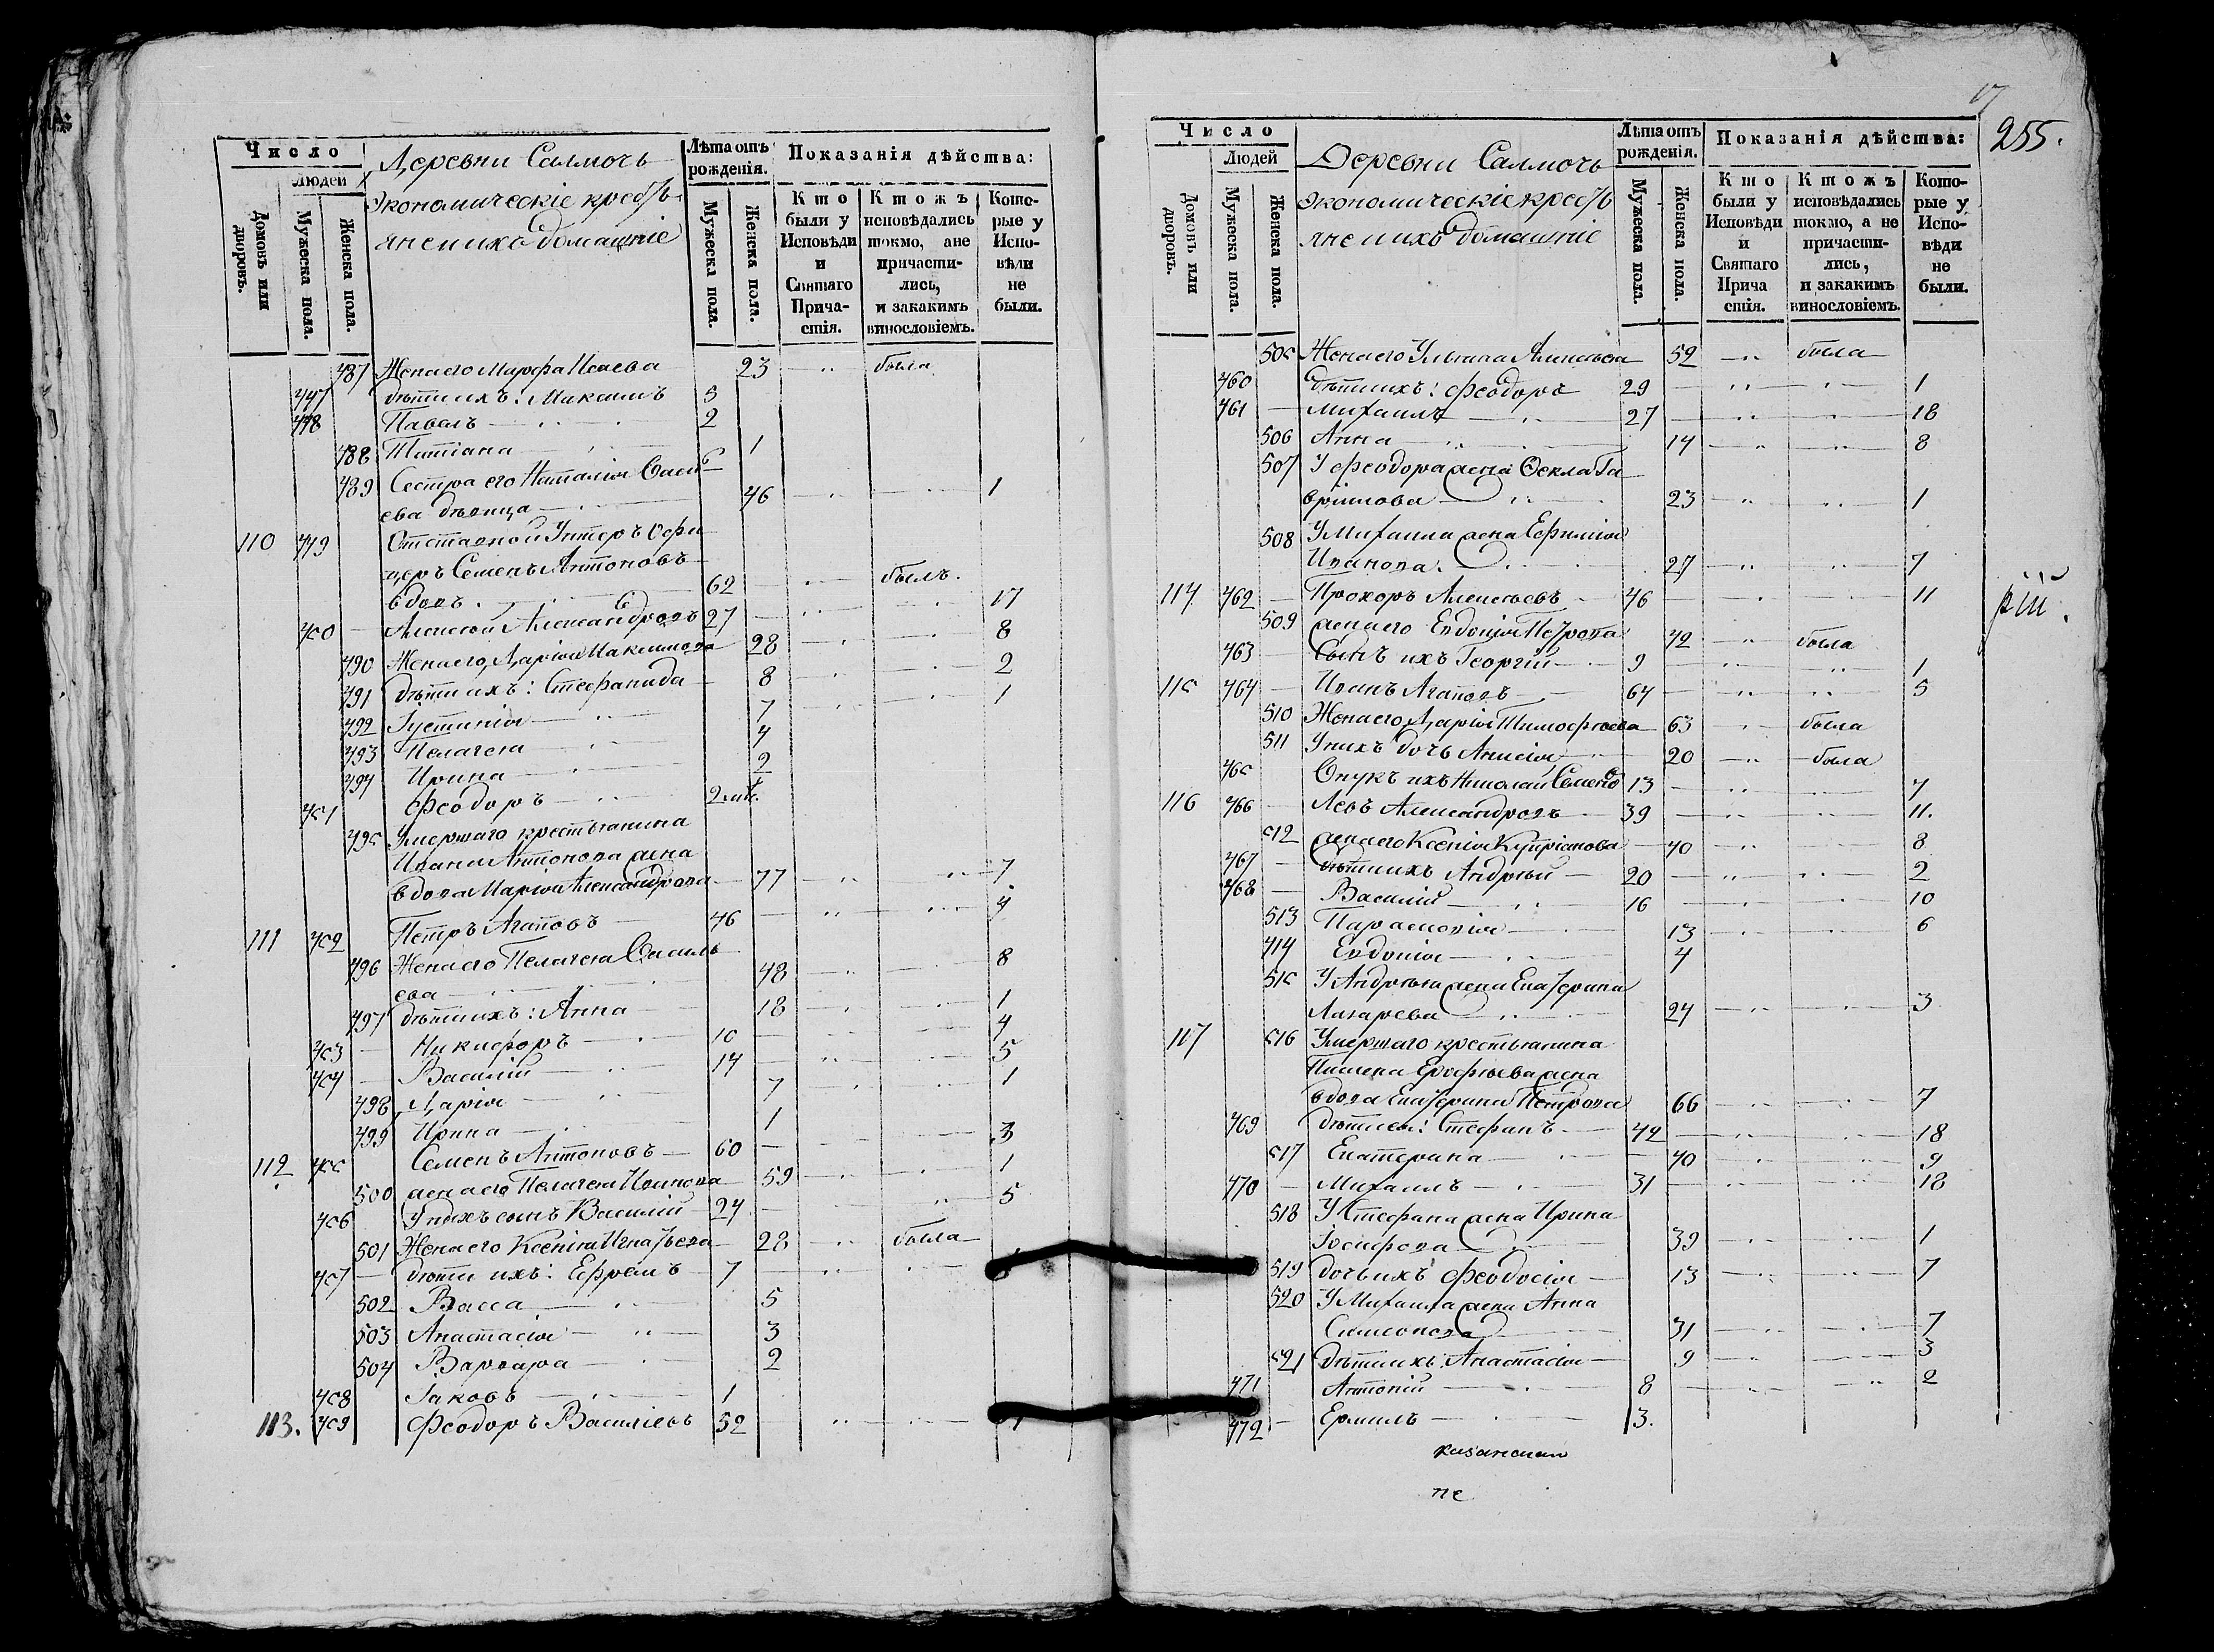 Число
Людей
Домовъ или дворовъ.
Мужеска пола.
Женска пола.
Деревни Салмочь
экономическіе кресть
яне и ихъ домашніе
Лѣта отъ рожденія.
Мужеска пола.
Женска пола.
Показанія дѣйства:
Кто были у Исповѣди и Святаго Прича-стія.
Ктожъ исповѣдались токмо, а не причасти-лись, и закакимъ винословіемъ.
Кото-рые у Испо-вѣди не были.
487 Жена его Марфа Исаева 23 была
447 дѣти ихъ: Максимъ 5
448 Павелъ 2
488 Татіана 1
489 Сестра его Наталія Васи
ева дѣвица 46 1
110 449 Отставной Унтеръ Офи
церъ Семенъ Антоновъ
вдовъ. 62 былъ.
450 Алексей Александровъ 27 17
490 Жена его Дарія Максимова 28 8
491 дѣти ихъ: Стефанида 8 2
492 Іустинія 7 1
493 Пелагея 4
494 Ирина 2
451 Феодоръ
495 Умершаго крестьянина
Ивана Антонова жена
вдова Марія Александрова 77 7
111 452 Петръ Агаповъ 46 4
496 Жена его Пелагея Василь
ева 48 8
497 дѣти ихъ: Анна 18 1
453 Никифоръ 10 4
454 Василій 14 5
498 Дарія 7 1
499 Ирина 1
112 455 Семенъ Антоновъ 60 3
500 жена его Пелагея Иванова 59 1
456 У нихъ сынъ Василій 24 5
501 Жена его Ксенія Игнатьева 28 была
457 дѣти ихъ: Ефремъ 7
502 Васса 5
503 Анастасія 3
504 Варвара 2
458 Іаковъ 1
113. 459 Феодоръ Василіевъ 52
17
255.
Число
Людей
Домовъ или дворовъ.
Мужеска пола.
Женска пола.
Деревни Салмочь
экономическіе кресть
яне и ихъ домашніе
Лѣта отъ рожденія.
Мужеска пола.
Женска пола.
Показанія дѣйства:
Кто были у Исповѣди и Святаго Прича стія.
Ктожъ исповѣдались токмо, а не причасти-лись, и закакимъ винословіемъ.
Кото-рые у Испо-вѣди не были.
505 Жена его Ульяна Алексѣева 52 была
460 дѣти ихъ: Феодоръ 29 1
461 Михаилъ 27 18
506 Анна 14 8
507 У Феодора жена Фекла Га
вріилова 23 1
508 У Михаила жена Ефимія
Иванова. 27 7
114 462 Прохоръ Алексѣевъ 46 11
509 жена его Евдокія Петрова 42 была
463 Сынъ ихъ Георгій 9 1
115 464 Иванъ Агаповъ 64 5
510 Жена его Дарія Тимофѣева 63 была
511 У нихъ дочь Анисія 20 была
465 Внукъ ихъ Николай Семеновъ 13 7
116 466 Левъ Александровъ 39 11.
512 жена его Ксенія Купріанова 40 8
467 дѣти ихъ Андрей 20 2
468 Василій 16 10
513 Параскевія 13 6
414 Евдокія 4
515 У Андрея жена Екатерина
Лазарева 24 3
117 516 Умершаго крестьянина
Пимена Ерофѣева жена
вдова Екатерина Петрова 66 7
469 дѣти ея: Стефанъ 42 18
517 Екатерина 40 9
470 Михаилъ 31 18
518 У Стефана жена Ирина
Іосифова 39 1
519 дочь ихъ Феодосія 13 7
520 У Михаила жена Анна
Симеонова 31 7
521 дѣти ихъ Анастасія 9 3
471 Антоній 8 2
472 Ермилъ 3.